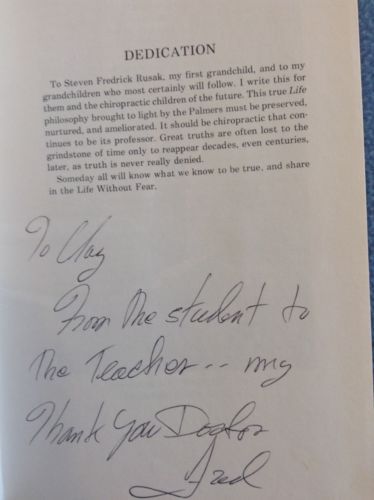 DEDICATION
To Steven Fredrick Rusak, my first grandchild, and to my
grandchildren who most certainly will follow. I write this for
them and the chiropractic children of the future. This true Life
philosophy brought to light by the Palmers must be preserved,
nurtured, and ameliorated. It should be chiropractic that con-
tinues to be its professor. Great truths are often lost to the
grindstone of time only to reappear decades, even centuries,
later, as truth is never really denied.
Someday all will know what we know to be true, and share
in the Life Without Fear.
To Clay
From The student to
The Teacher -- my
Thank You Doctor
Fred